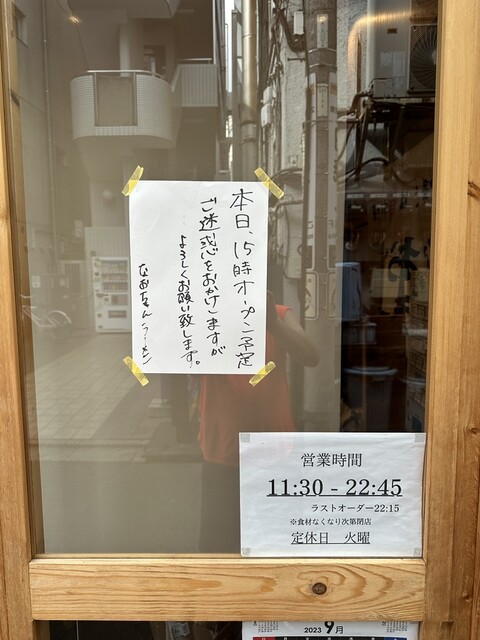 本日、15時オープン予定
ご迷惑をおかけしますが
よろしくお願い致します。
なおちゃんラーメン
営業時間
11:30 - 22:45
ラストオーダー22:15
※食材なくなり次第閉店
定休日 火曜
2023 9月